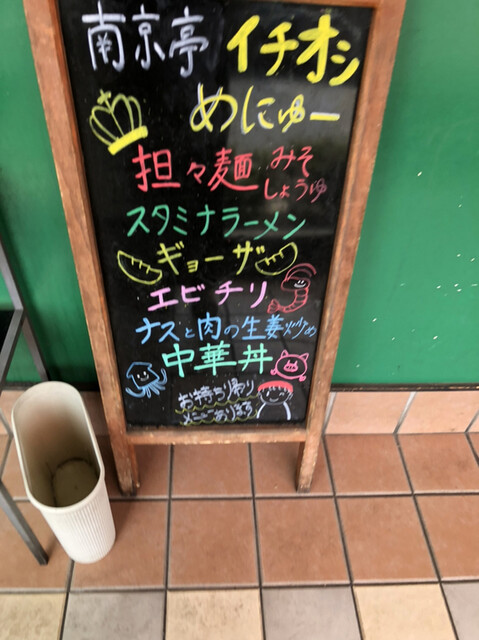 南京亭 イチオシ
めにゅー
担々麺 みそ しょうゆ
スタミナラーメン
ギョーザ
エビチリ
ナスと肉の生姜炒め
中華丼
お持ち帰り
メニューあります